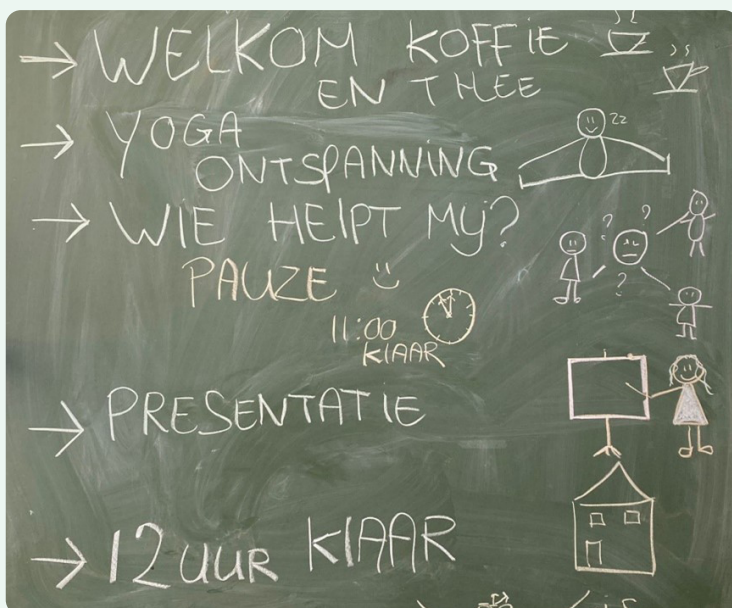 → WELKOM KOFFIE
EN THEE
→ YOGA
ONTSPANNING
zz
→ WIE HELPT MIJ?
? ? ?
PAUZE
11:00
KLAAR
→ PRESENTATIE
→ 12 UUR KLAAR